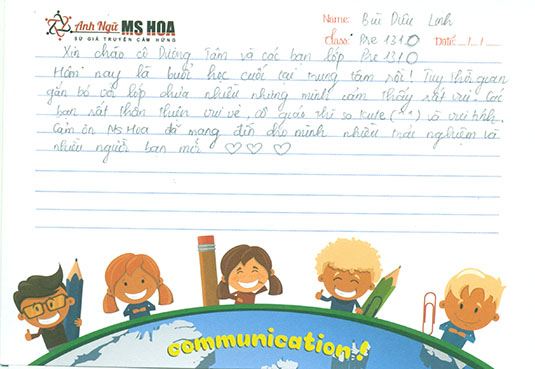 Anh Ngữ MS HOA
SỨ GIẢ TRUYỀN CẢM HỨNG
Name: Bùi Diệu Linh
Class: Pre 1310 Date: / /
Xin chào cô Dương Tâm và các bạn lớp Pre 1310
Hôm nay là buổi học cuối tại trung tâm rồi! Tuy thời gian
gắn bó với lớp chưa nhiều nhưng mình cảm thấy rất vui. Các
bạn rất thân thiện vui vẻ, cô giáo thì so kute (^^) và vui tính.
Cảm ơn Ms Hoa đã mang đến cho mình nhiều trải nghiệm và
nhiều người bạn mới ♡ ♡ ♡
communication!